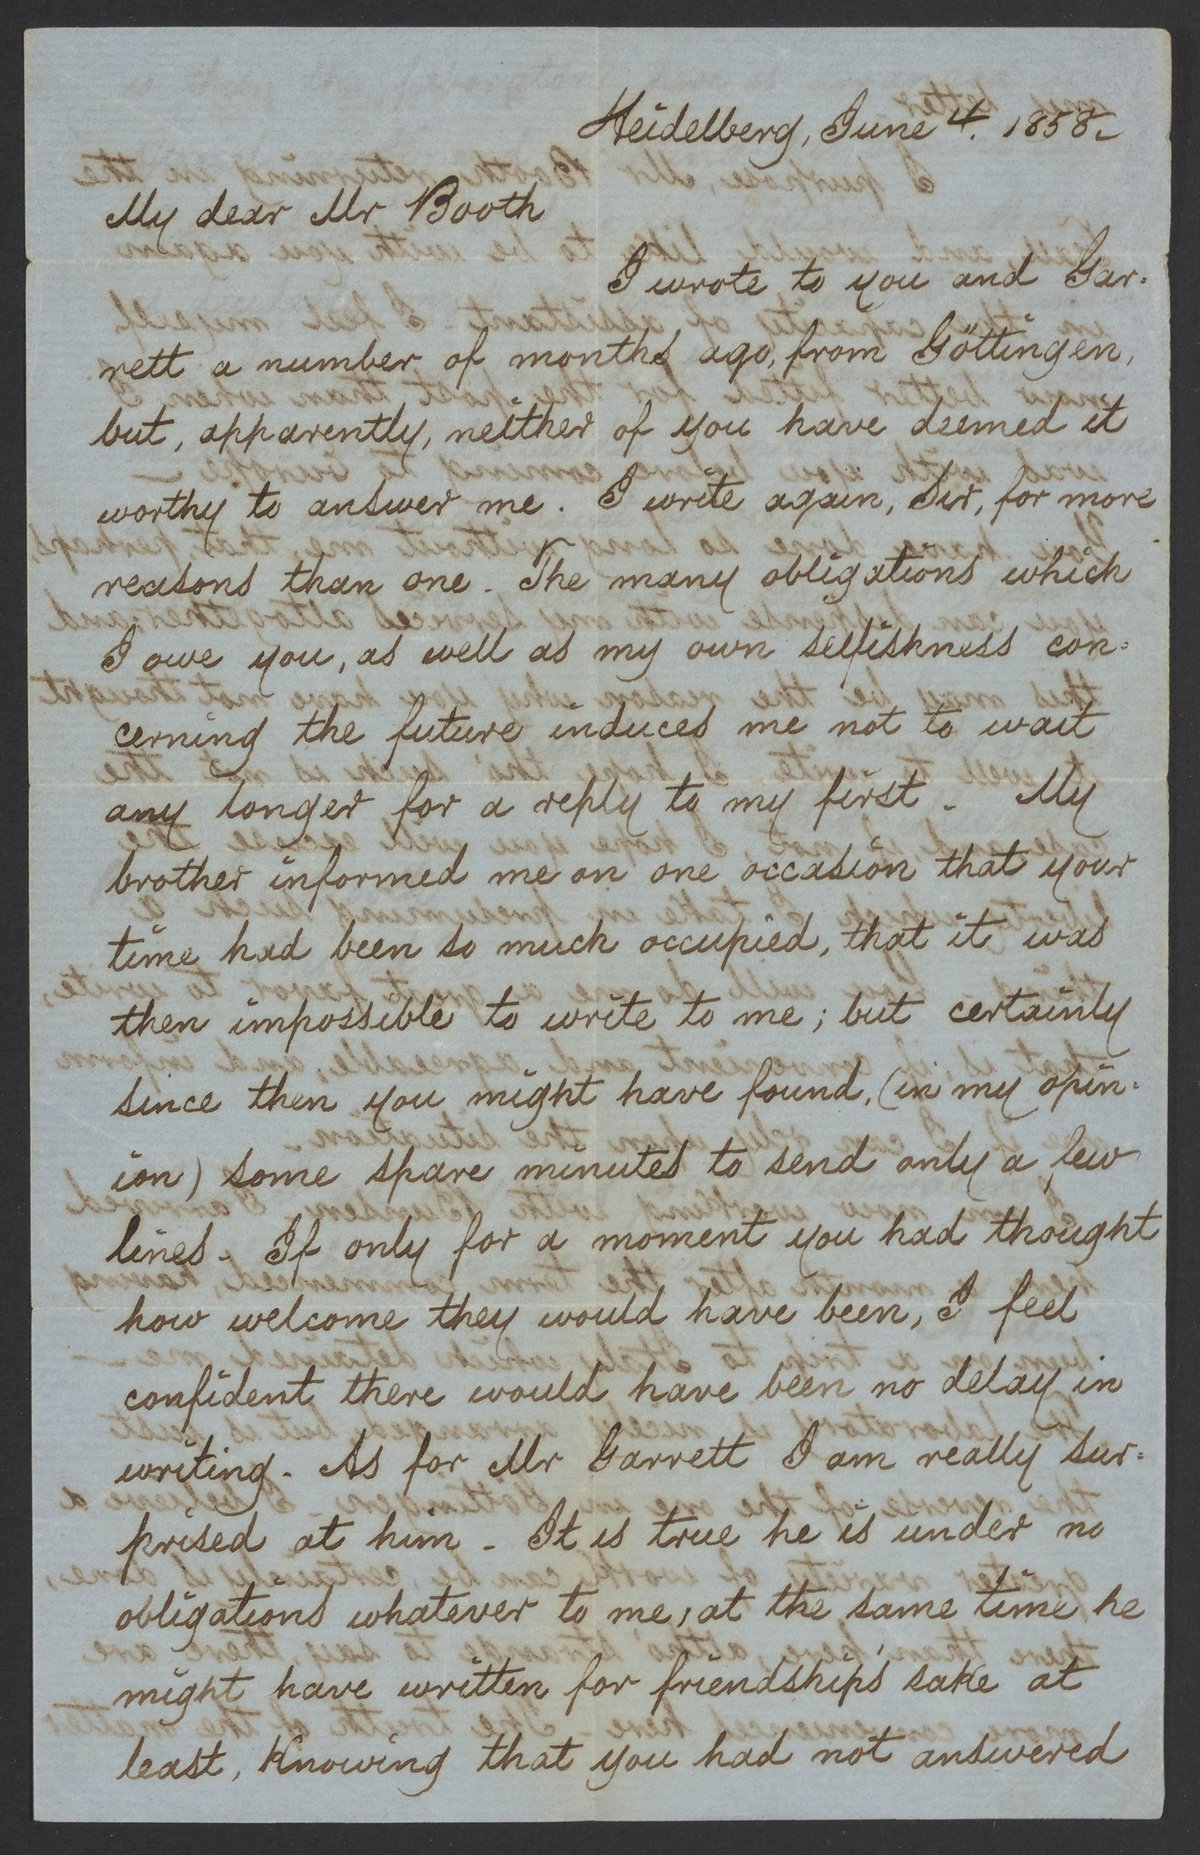 Heidelberg, June 4. 1858.
My dear Mr Booth
I wrote to you and Gar-
rett a number of months ago, from Göttingen,
but, apparently, neither of you have deemed it
worthy to answer me. I write again, Sir, for more
reasons than one. The many obligations which
I owe you, as well as my own selfishness con-
cerning the future induces me not to wait
any longer for a reply to my first. My
brother informed me on one occasion that your
time had been so much occupied, that it was
then impossible to write to me; but certainly
since then you might have found, (in my opin-
ion) some spare minutes to send only a few
lines. If only for a moment you had thought
how welcome they would have been, I feel
confident there would have been no delay in
writing. As for Mr Garrett I am really sur-
prised at him. It is true he is under no
obligations whatever to me, at the same time he
might have written for friendship's sake at
least, knowing that you had not answered